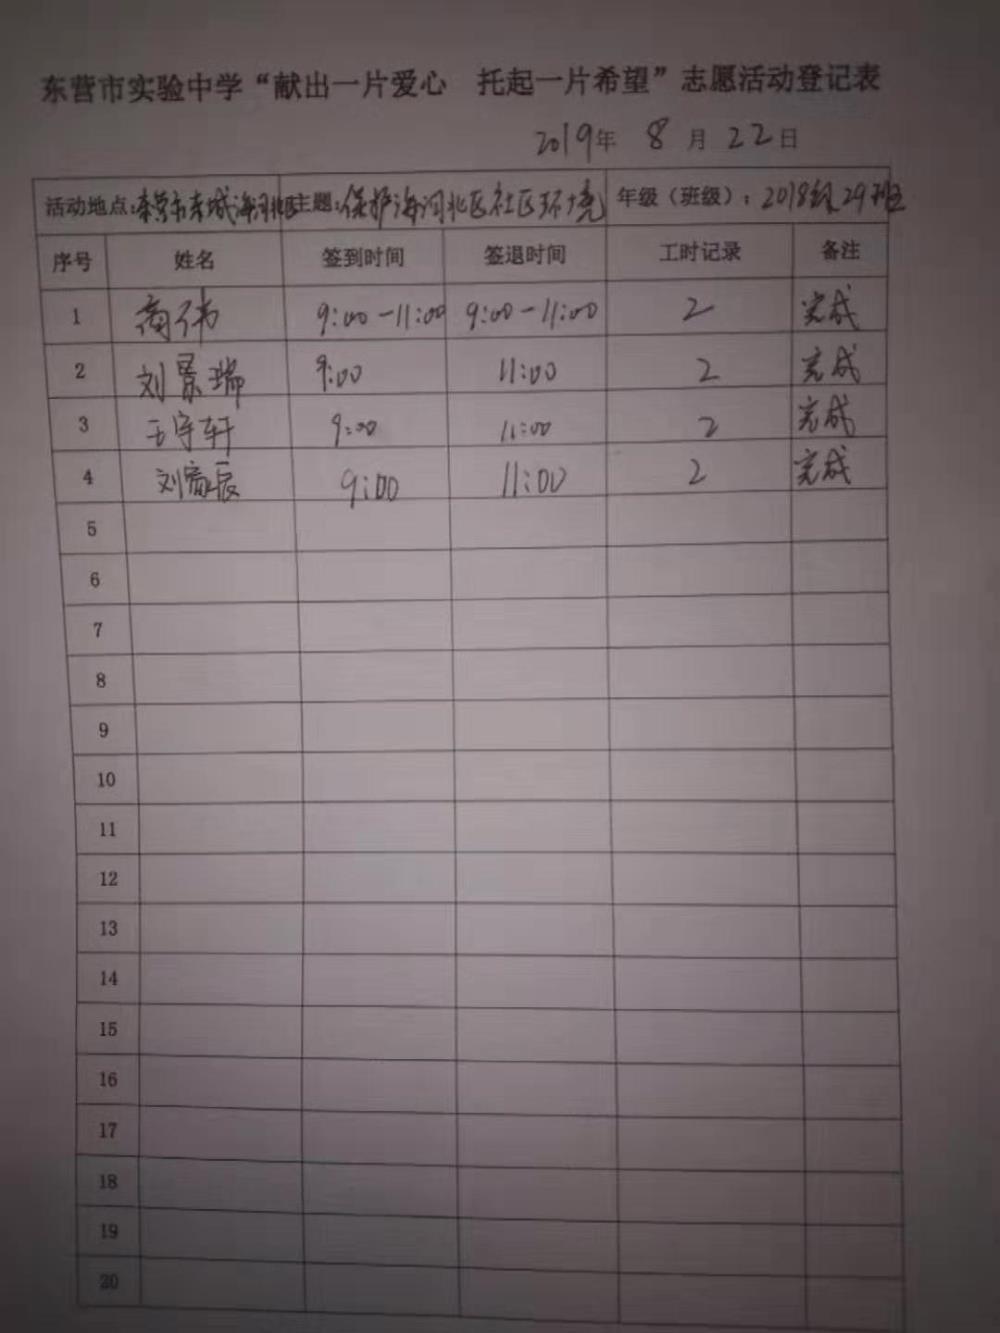 东营市实验中学“献出一片爱心 托起一片希望”志愿活动登记表
2019年 8 月 22日
活动地点:东营市东城海河北区 主题:保护海河北区社区环境 年级(班级):2018级29班
序号 姓名 签到时间 签退时间 工时记录 备注
1 商伟 9:00-11:00 9:00-11:00 2 完成
2 刘景瑞 9:00 11:00 2 完成
3 王守轩 9:00 11:00 2 完成
4 刘 辰 9:00 11:00 2 完成
5
6
7
8
9
10
11
12
13
14
15
16
17
18
19
20